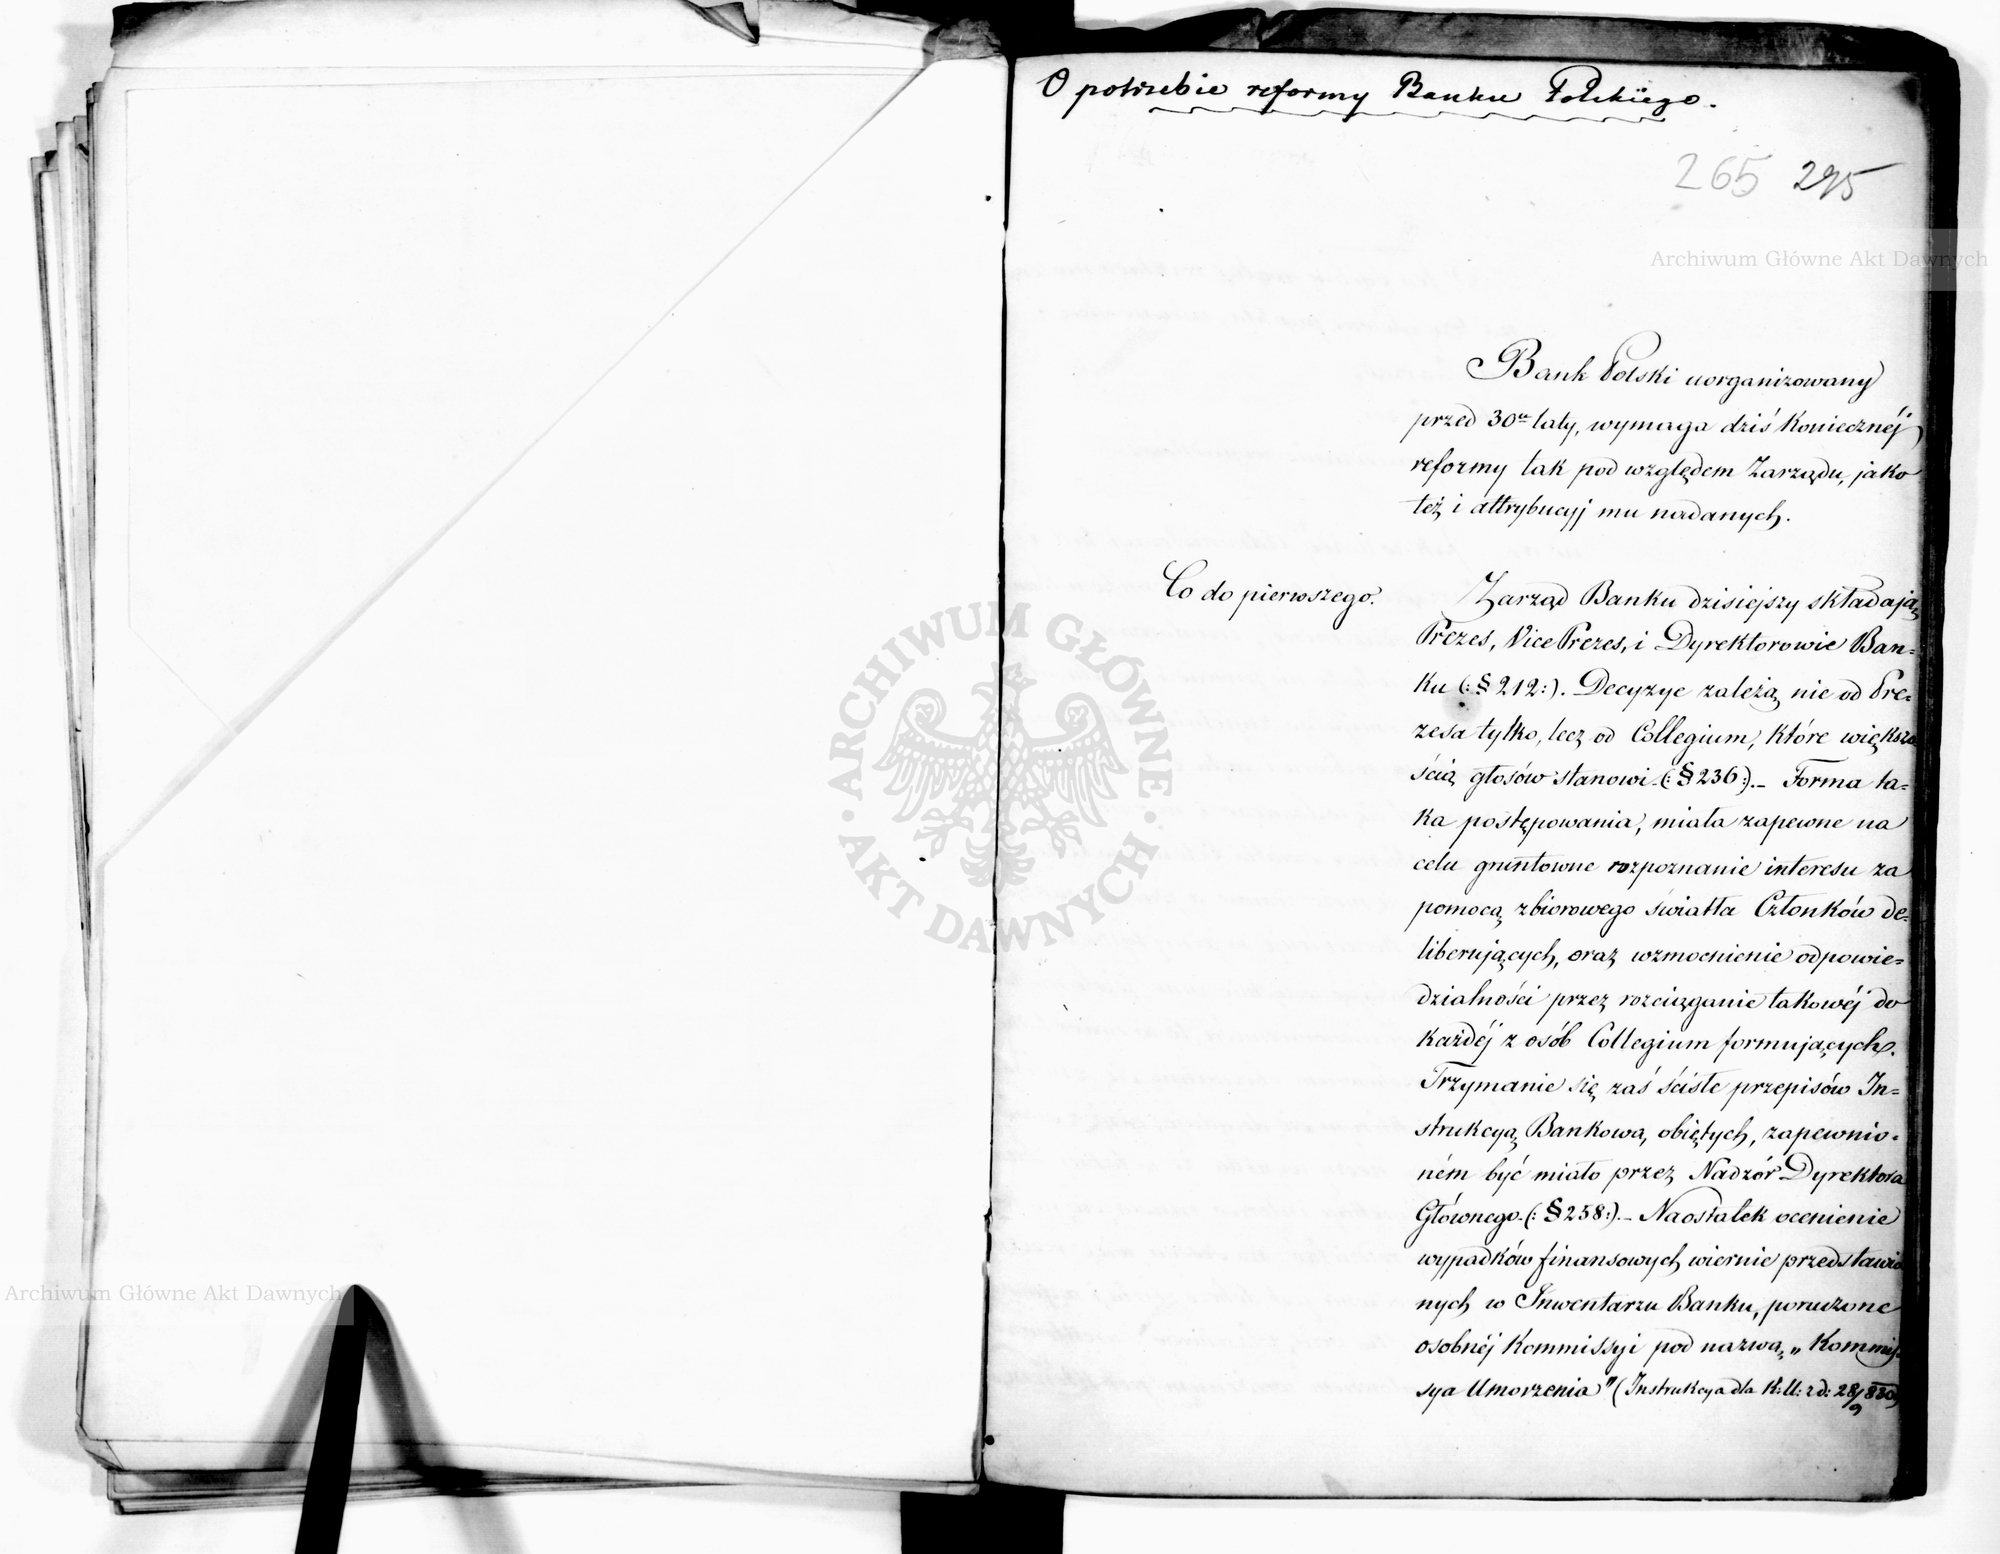 O potrzebie reformy Banku Polskiego.
265 295
Archiwum Główne Akt Dawnych
Bank Polski uorganizowany
przed 30tu laty, wymaga dziś koniecznéj
reformy tak pod względem Zarządu, jako
też i attrybucyj mu nadanych.
Co do pierwszego.
Zarząd Banku dzisiejszy składają
Prezes, Vice Prezes, i Dyrektorowie Ban=
ku (: § 212:). Decyzye zależą nie od Pre=
zesa tylko, lecz od Collegium, które większo
ścią głosów stanowi (: § 236:).– Forma ta=
ka postępowania, miała zapewne na
celu gruntowne rozpoznanie interesu za
pomocą zbiorowego światła Członków de=
liberujących, oraz wzmocnienie odpowie=
dzialności przez rozciąganie takowéj do
każdéj z osób Collegium formujących.
Trzymanie się zaś ściśle przepisów In=
strukcyą Bankową obiętych, zapewnio=
ném być miało przez Nadzór Dyrektora
Głównego (: § 258:).– Naostatek ocenienie
wypadków finansowych wiernie przedstawio
nych w Inwentarzu Banku, poruczone
osobnéj Kommissyi pod nazwą „Kommis=
sya Umorzenia" (Instrukcya dla K: U: z d: 28/9 830)
ARCHIWUM GŁÓWNE
AKT DAWNYCH
Archiwum Główne Akt Dawnych